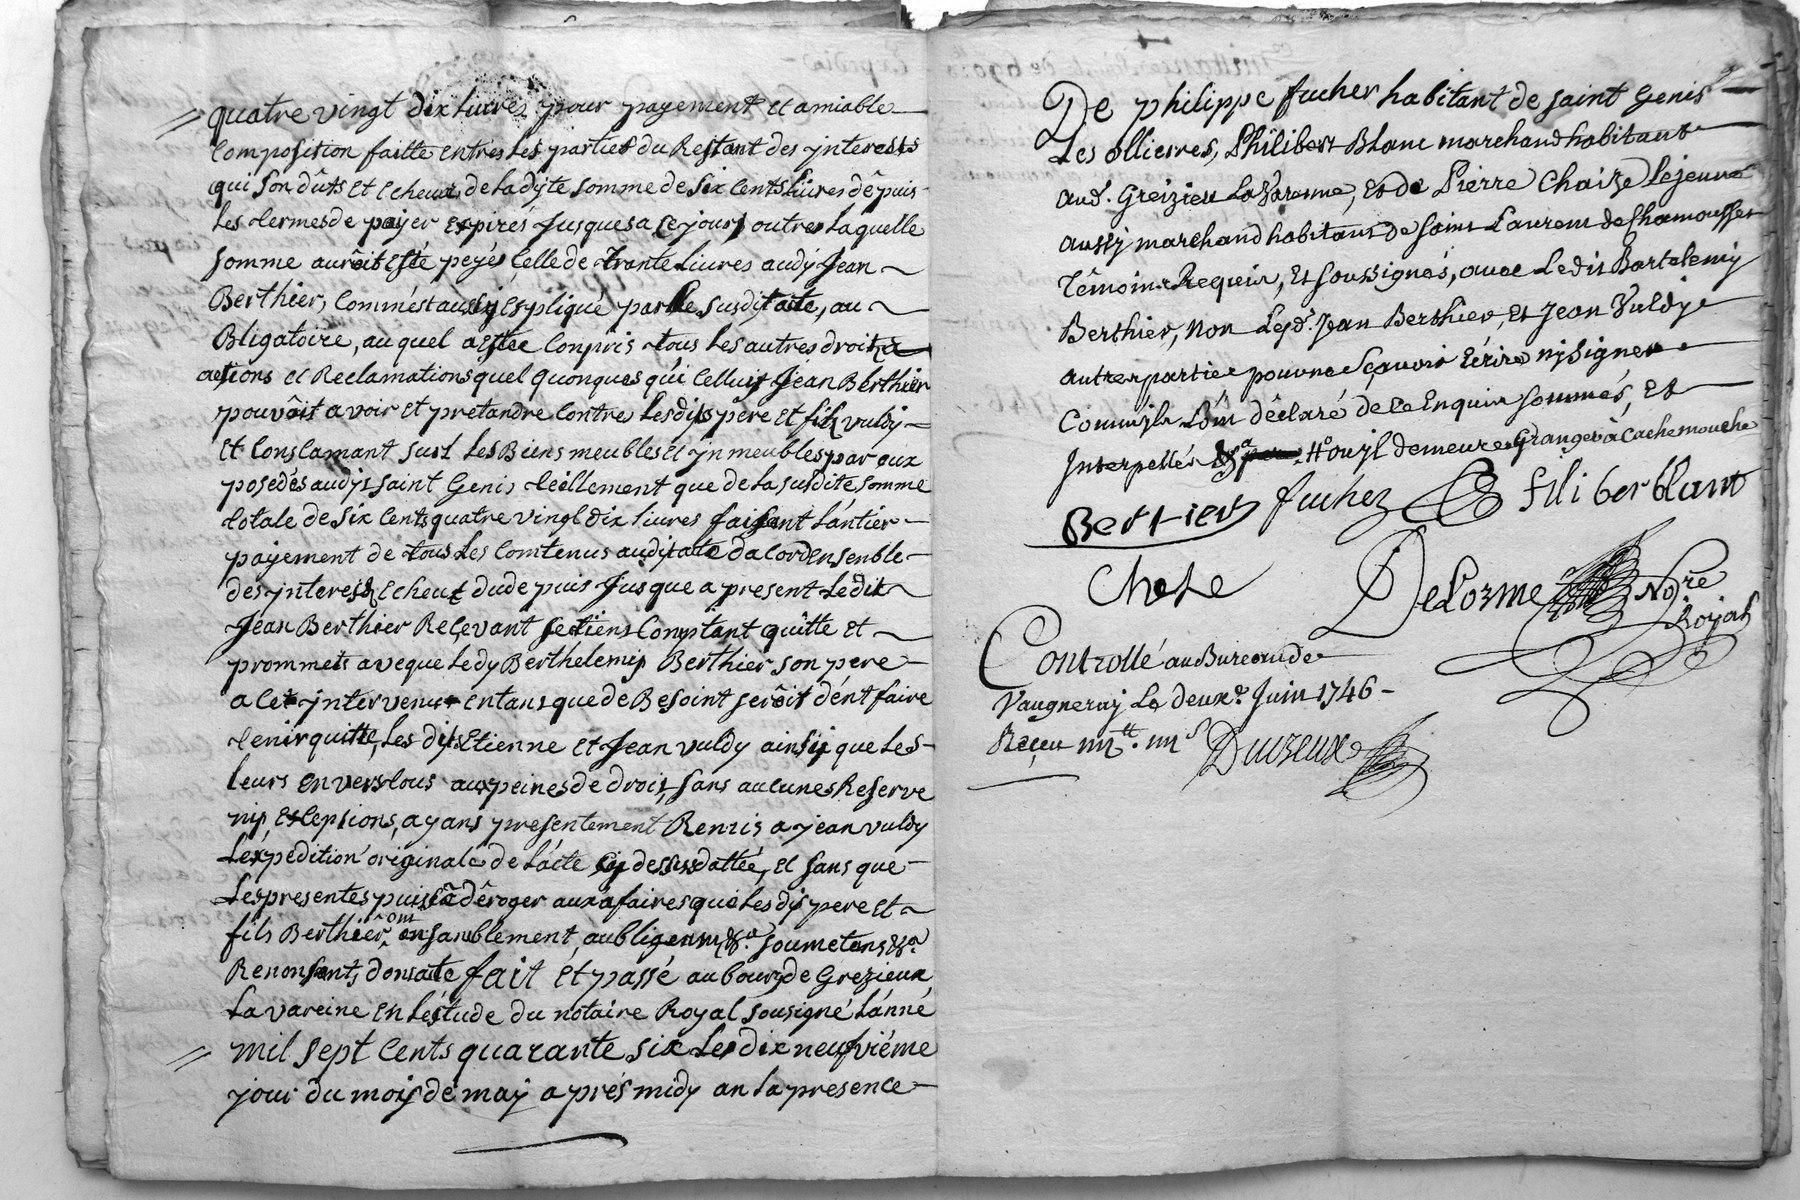 quatre vingt dix Livres pour payement et amiable
Composition faitte entres les parties du Restant des ynterests
qui son dûts et Echeux de la dyte somme de six Cents Livres dêpuis
Les termes de payer Expirés Jusques a Ce jour, outres Laquelle
somme aurôit Esté peyés Celle de trante Livres audy Jean
Berthier, Comm'est aussy Expliqué par le susdit acte, au
Bligatoire, auquel a Estée Conpris tous Les autres droits
actions et Reclamations quel quonques qui Celluit Jean Berthier
pouvôit avoir et pretandre Contre Lesdits père et fils vuldy
Et Conscamant surt Les Biens meubles et ynmeubles par eux
posedés audyt saint Genis Réellement que de La susdite somme
totale de six Cents quatre vingt dix Livres faisant L'antier
payement de tous Les Comtenus audit acte d'acord ensenble
des ynterests Echeux dudepuis Jusque a present Ledit
Jean Berthier Reçevant se tiens Comptant quitte et
prommets aveque Ledy Berthelemy Berthier son pere
a Cet yntervenut entans que de Besoint serôit d'ent faire
tenir quitte, Les dits Etienne et Jean vuldy ainsy que Les
Leurs envers tous aux peines de droit, sans aucunes Reserve
ny Exceptions, ayans presentement Remis a jean vuldy
L'expedition originale de L'acte cy dessus dattée, et sans que
Les presentes puisse dêroger aux afaires que Les dis pere et
fils Berthier ont ensamblement, aubligemt &a. soumetans &a.
Renonsant, dont acte fait et passé au bourg de Grezieux
La vareine en L'éstude du notaire Royal sousigné L'anné
mil sept Cents quarante six Les dix neufviéme
jour du mois de may aprés midy an La presence
De philippe fucher habitant de saint Genis
Les ollierres, Philibert Blanc marchand habitant
aud. Greizieu La Varenne, et de Pierre Chaize Lejeune
aussy marchand habitant de saint Laurent de Chamousset
Têmoins Requis, Et soussignés, avec Ledit Bartelemy
Berthier, non Leyd. Jean Berthier, Et Jean Vuldy
autres parties pour ne Sçavoir Ecrire ny signer
Comm'ils L'ôn dêclaré de ce Enquis sommés, Et
Interpellés &a Ho ou yl demeure Granger à Cachemouche
Bertier fucher filiber blanc
Chese DeLorme Nore
Royal
Controllé au Bureau de
Vaugneray Le deux.e Juin 1746
Reçeu Duvreux